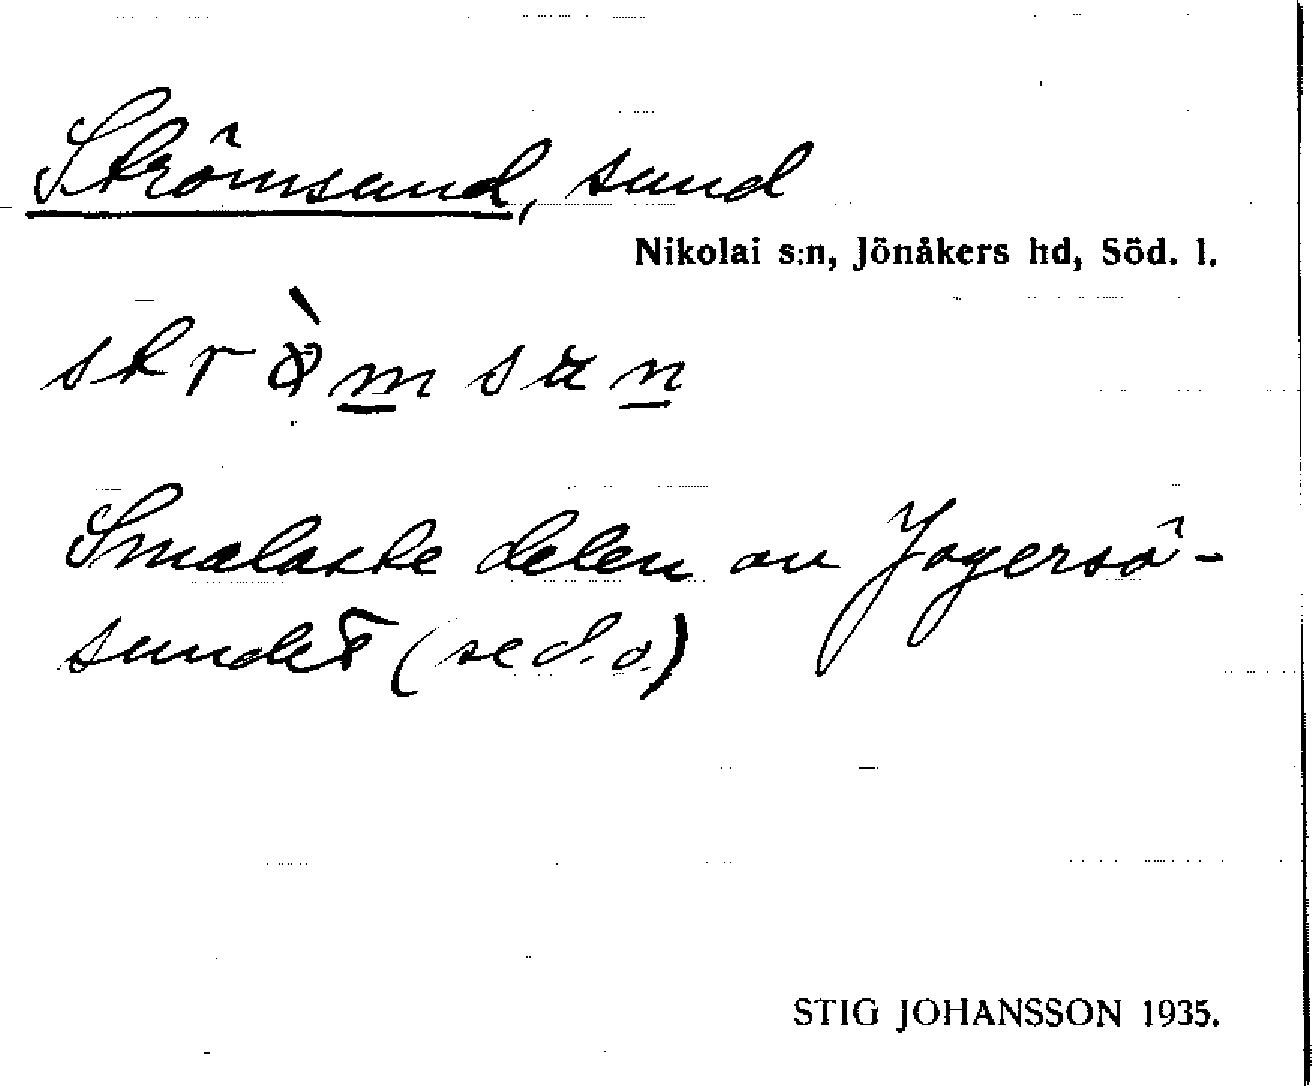 Strömsund, sund
Nikolai s:n, Jönåkers hd, Söd. l.
Smalaste delen av Jogersö-
sundet (se d.o.)
STIG JOHANSSON 1935.